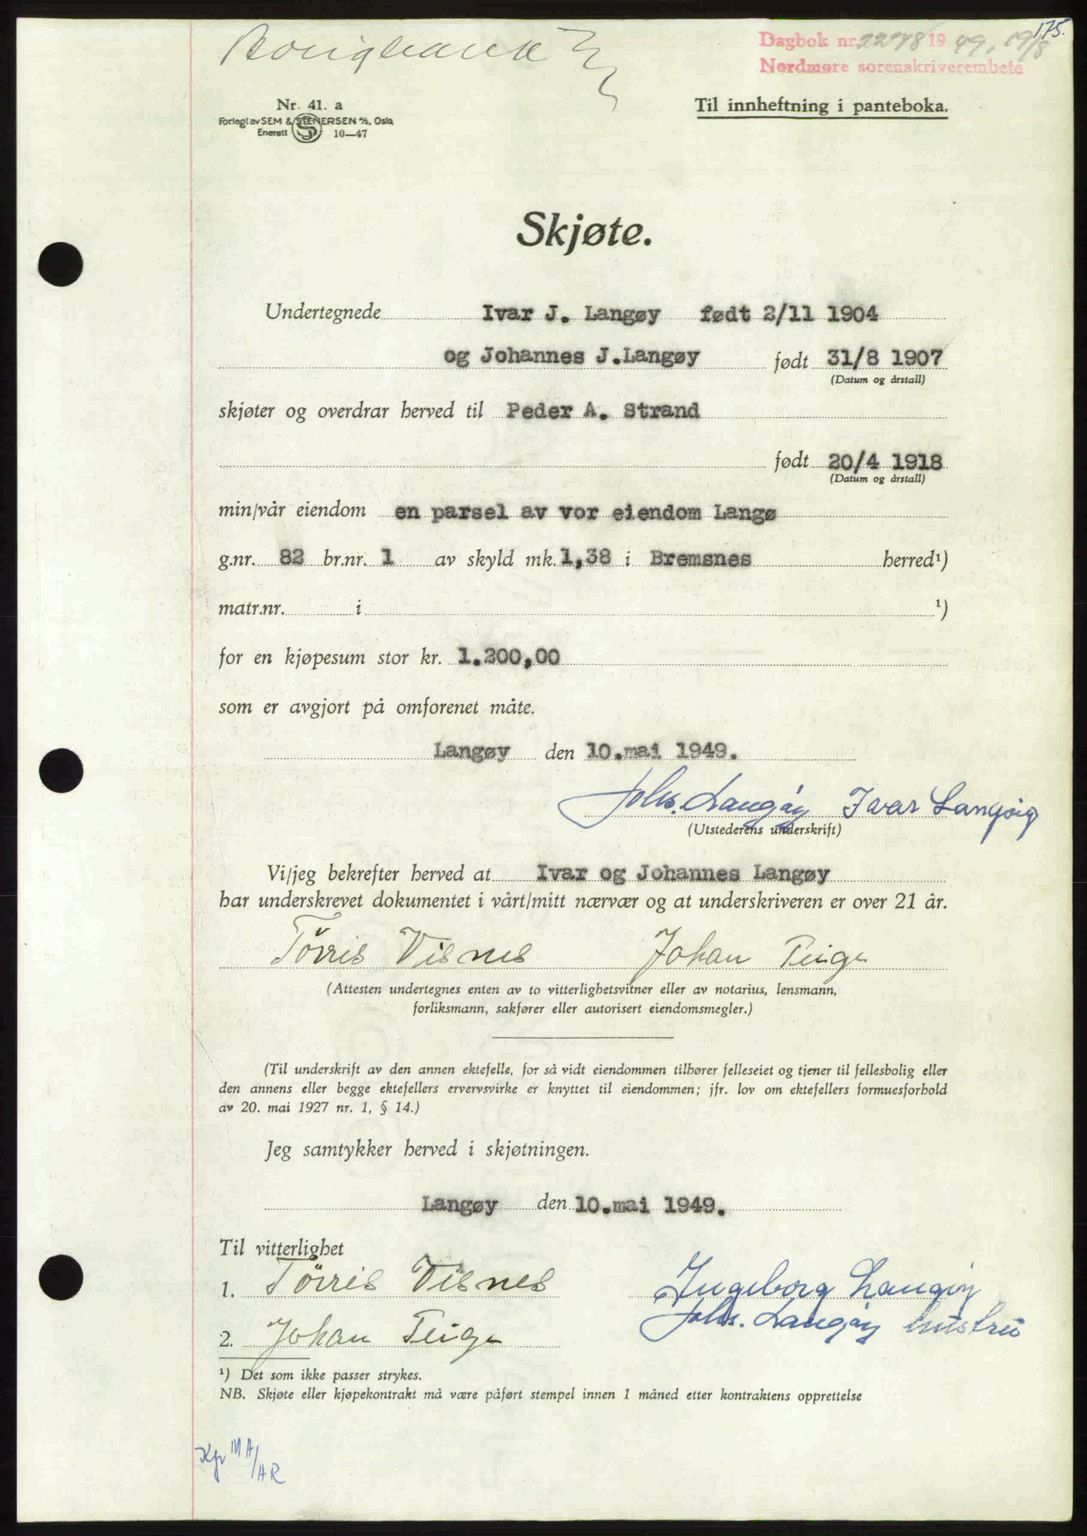 175.
Dagbok nr. 2278 1949, 19/8
Nordmøre sorenskriverembete
Nr. 41. a
Forlagt av SEM & STENERSEN A/S, Oslo
Enerett 10—47
Til innheftning i panteboka.
Skjøte.
Undertegnede Ivar J. Langøy født 2/11 1904
og Johannes J.Langøy født 31/8 1907
(Datum og årstall)
skjøter og overdrar herved til Peder A. Strand
født 20/4 1918
(Datum og årstall)
min/vår eiendom en parsel av vor eiendom Langø
g.nr. 82 br.nr. 1 av skyld mk. 1,38 i Bremsnes herred¹)
matr.nr. i ¹)
for en kjøpesum stor kr. 1.200,00
som er avgjort på omforenet måte.
Langøy den 10.mai 1949.
Johs. Langøy Ivar Langøig
(Utstederens underskrift)
Vi/jeg bekrefter herved at Ivar og Johannes Langøy
har underskrevet dokumentet i vårt/mitt nærvær og at underskriveren er over 21 år.
Törris Visnes Johan Teige
(Attesten undertegnes enten av to vitterlighetsvitner eller av notarius, lensmann,
forliksmann, sakfører eller autorisert eiendomsmegler.)
(Til underskrift av den annen ektefelle, for så vidt eiendommen tilhører felleseiet og tjener til fellesbolig eller
den annens eller begge ektefellers ervervsvirke er knyttet til eiendommen; jfr. lov om ektefellers formuesforhold
av 20. mai 1927 nr. 1, § 14.)
Jeg samtykker herved i skjøtningen.
Langøy den 10.mai 1949.
Til vitterlighet
1. Törris Visnes Ingeborg Langøy
Johs. Langøy hustru
2. Johan Teige
¹) Det som ikke passer strykes.
NB. Skjøte eller kjøpekontrakt må være påført stempel innen 1 måned etter kontraktens opprettelse
MA/AR